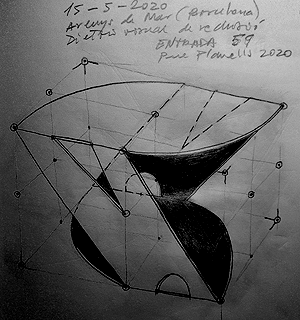 15-5-2020
Arenys de Mar (Barcelona)
Dietari visual de reclusió
ENTRADA 59
Pere Planells 2020